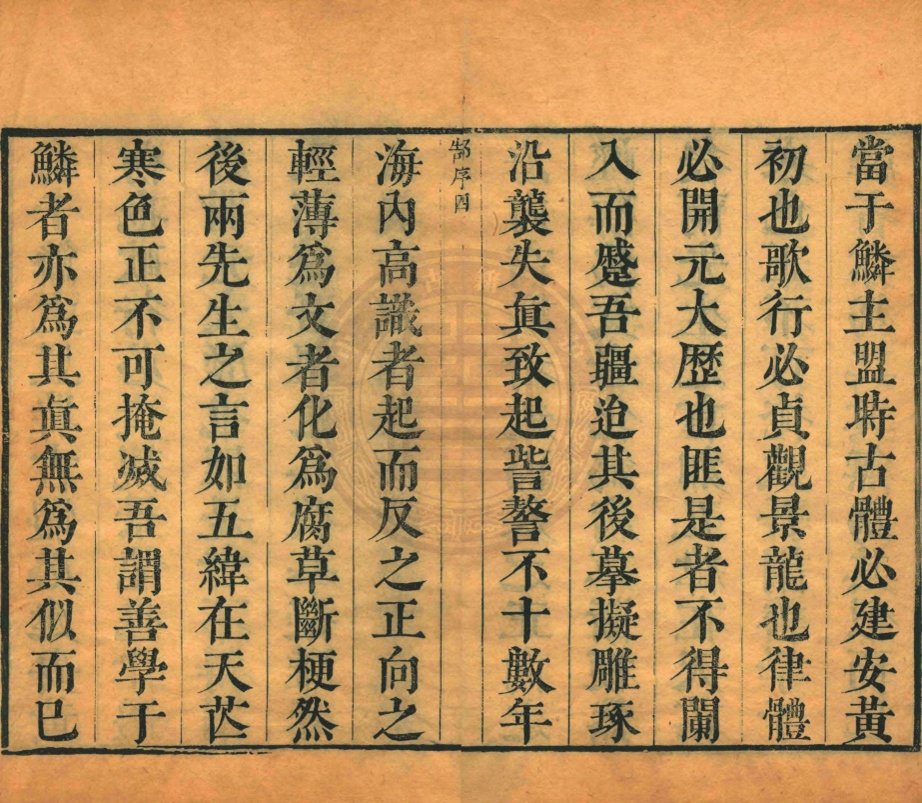 當于鱗主盟時古體必建安黃
初也歌行必貞觀景龍也律體
必開元大歷也匪是者不得闌
入而蹙吾疆迨其後摹擬雕琢
沿襲失眞致起訾謷不十數年
郜序四
海內高識者起而反之正向之
輕薄爲文者化爲腐草斷梗然
後兩先生之言如五緯在天芒
寒色正不可掩滅吾謂善學于
鱗者亦爲其眞無爲其似而已